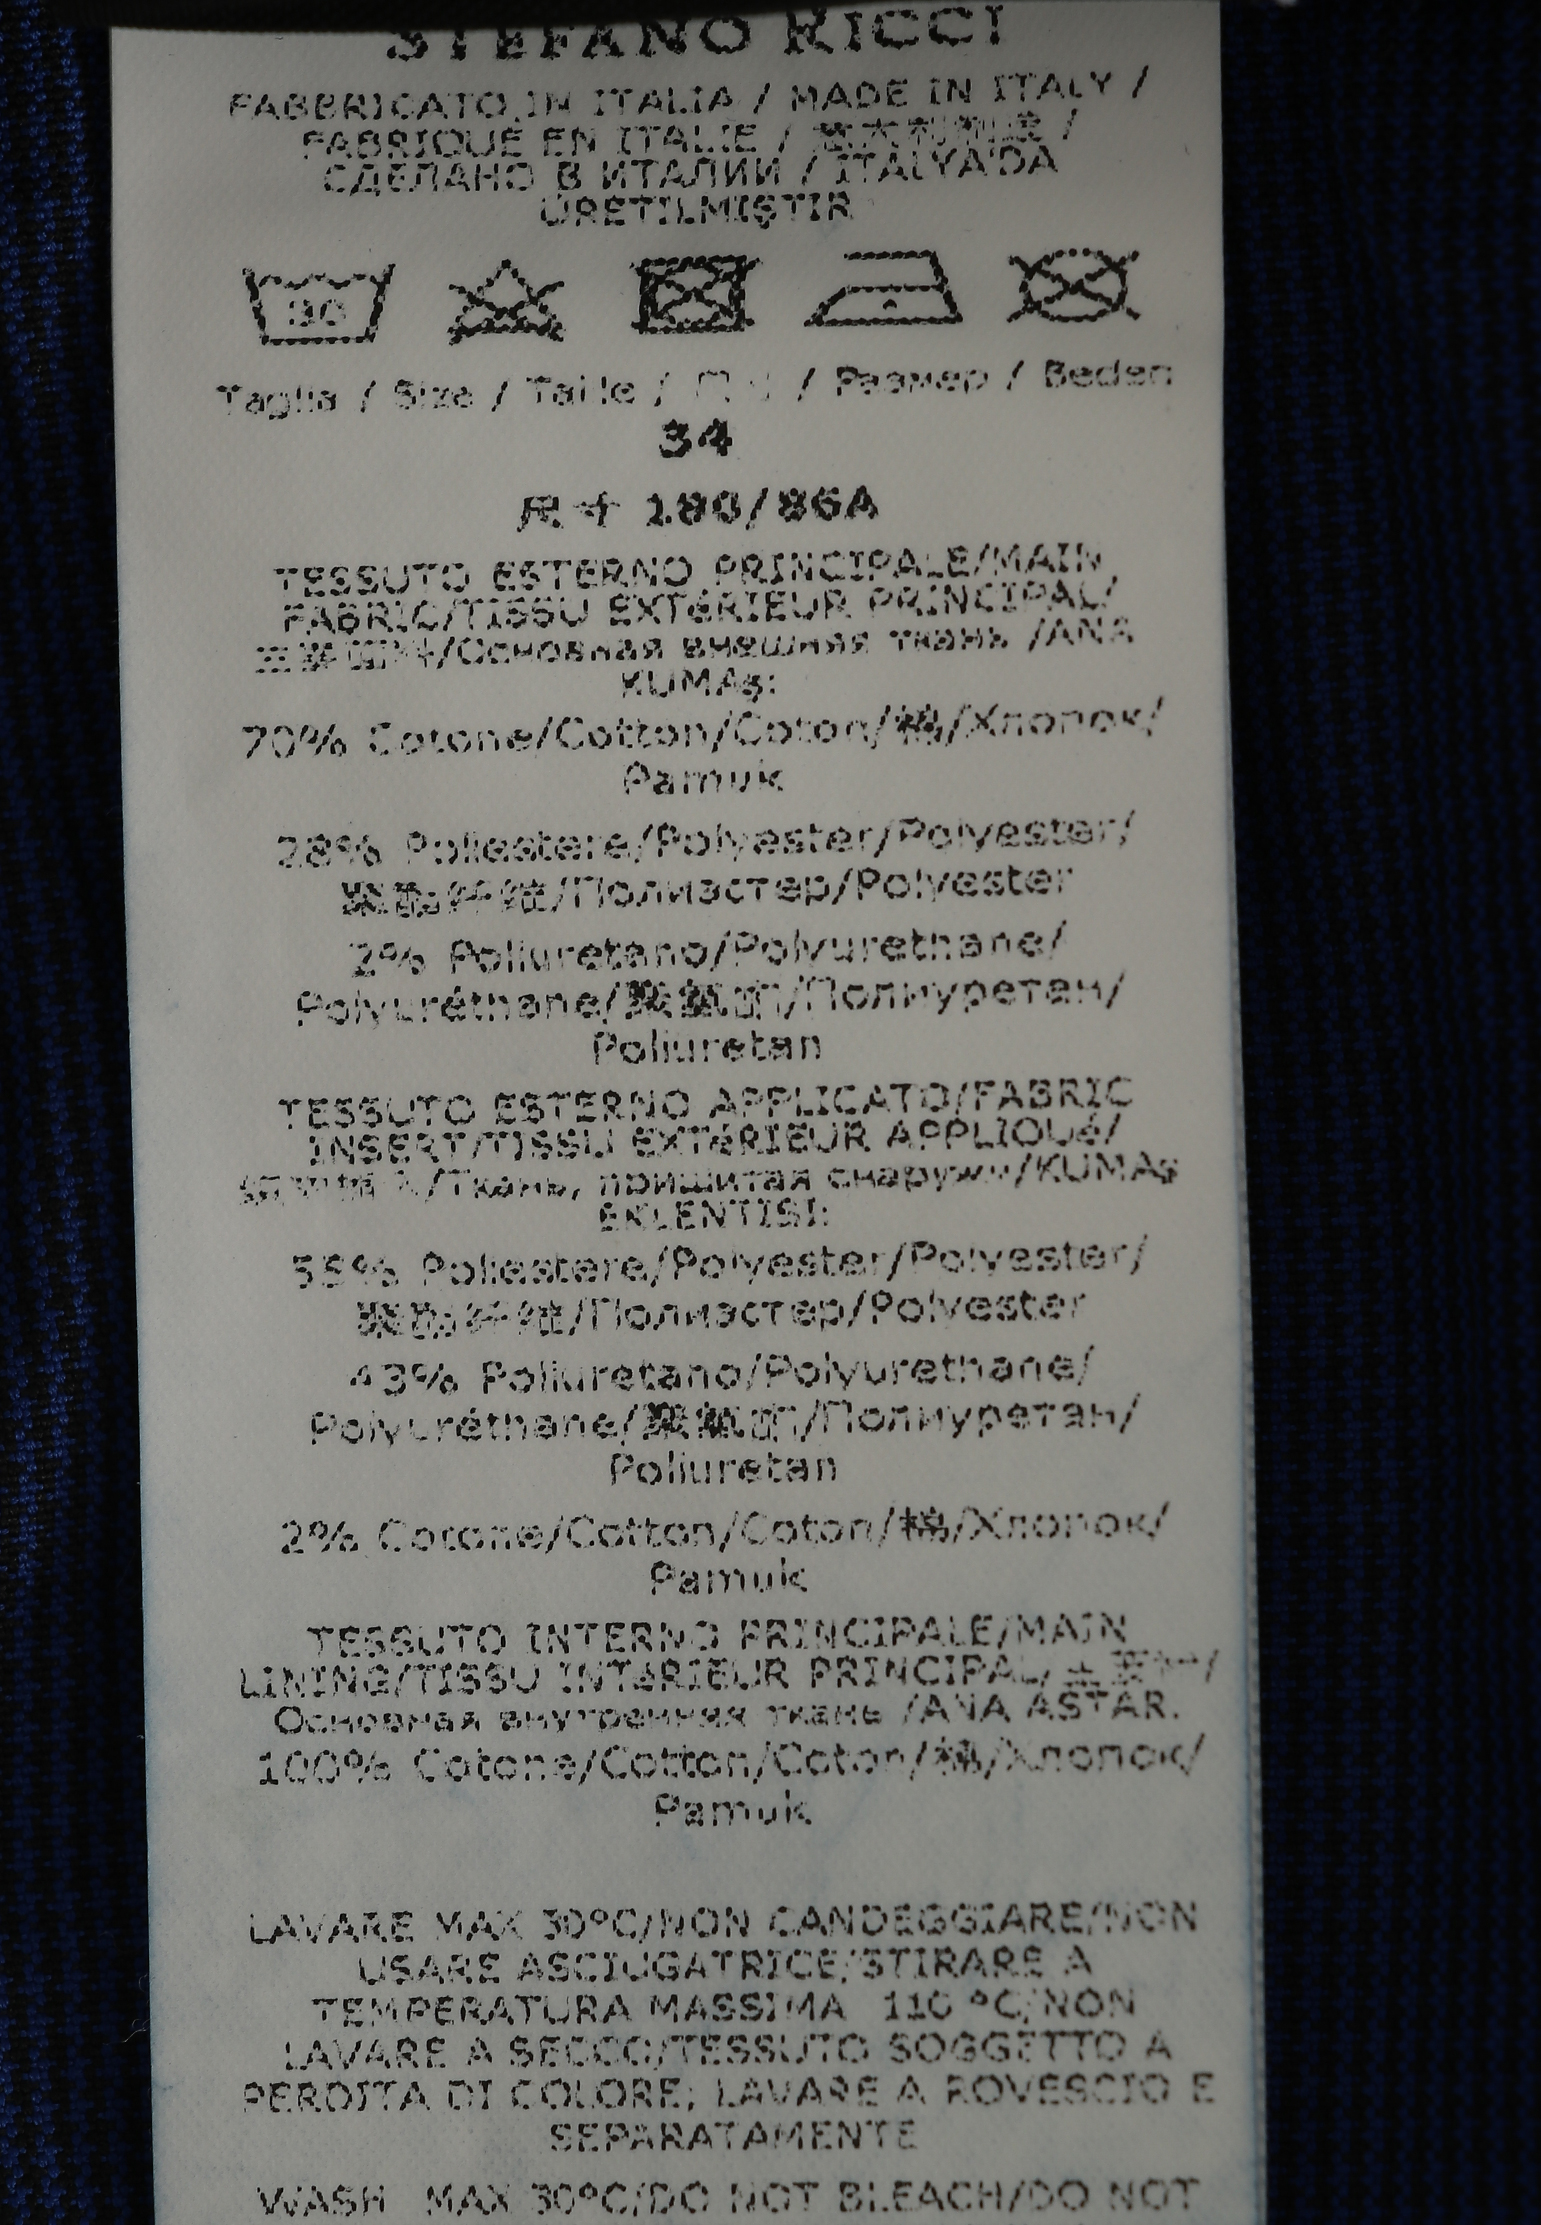 STEFANO RICCI
FABBRICATO IN ITALIA / MADE IN ITALY /
FABRIQUÉ EN ITALIE / /
СДЕЛАНО В ИТАЛИИ / ITALYA'DA
ÜRETILMIŞTIR
30
Taglia / Size / Taille / / Размер / Beden
34
180/86A
TESSUTO ESTERNO PRINCIPALE/MAIN
FABRIC/TISSU EXTéRIEUR PRINCIPAL/
/Основная внешняя ткань /ANA
KUMAş:
70% Cotone/Cotton/Coton/棉/Хлопок/
Pamuk
28% Poliestere/Polyester/Polyester/
聚酯纤维/Полиэстер/Polyester
2% Poliuretano/Polyurethane/
Polyuréthane/聚氨酯/Полиуретан/
Poliuretan
TESSUTO ESTERNO APPLICATO/FABRIC
INSERT/TISSU EXTéRIEUR APPLIQUé/
/Ткань, пришитая снаружи/KUMAş
EKLENTISI:
55% Poliestere/Polyester/Polyester/
聚酯纤维/Полиэстер/Polyester
43% Poliuretano/Polyurethane/
Polyuréthane/聚氨酯/Полиуретан/
Poliuretan
2% Cotone/Cotton/Coton/棉/Хлопок/
Pamuk
TESSUTO INTERNO PRINCIPALE/MAIN
LINING/TISSU INTéRIEUR PRINCIPAL/ /
Основная внутренняя ткань /ANA ASTAR.
100% Cotone/Cotton/Coton/棉/Хлопок/
Pamuk
LAVARE MAX 30°C/NON CANDEGGIARE/NON
USARE ASCIUGATRICE/STIRARE A
TEMPERATURA MASSIMA 110 °C/NON
LAVARE A SECCO/TESSUTO SOGGETTO A
PERDITA DI COLORE; LAVARE A ROVESCIO E
SEPARATAMENTE
WASH MAX 30°C/DO NOT BLEACH/DO NOT